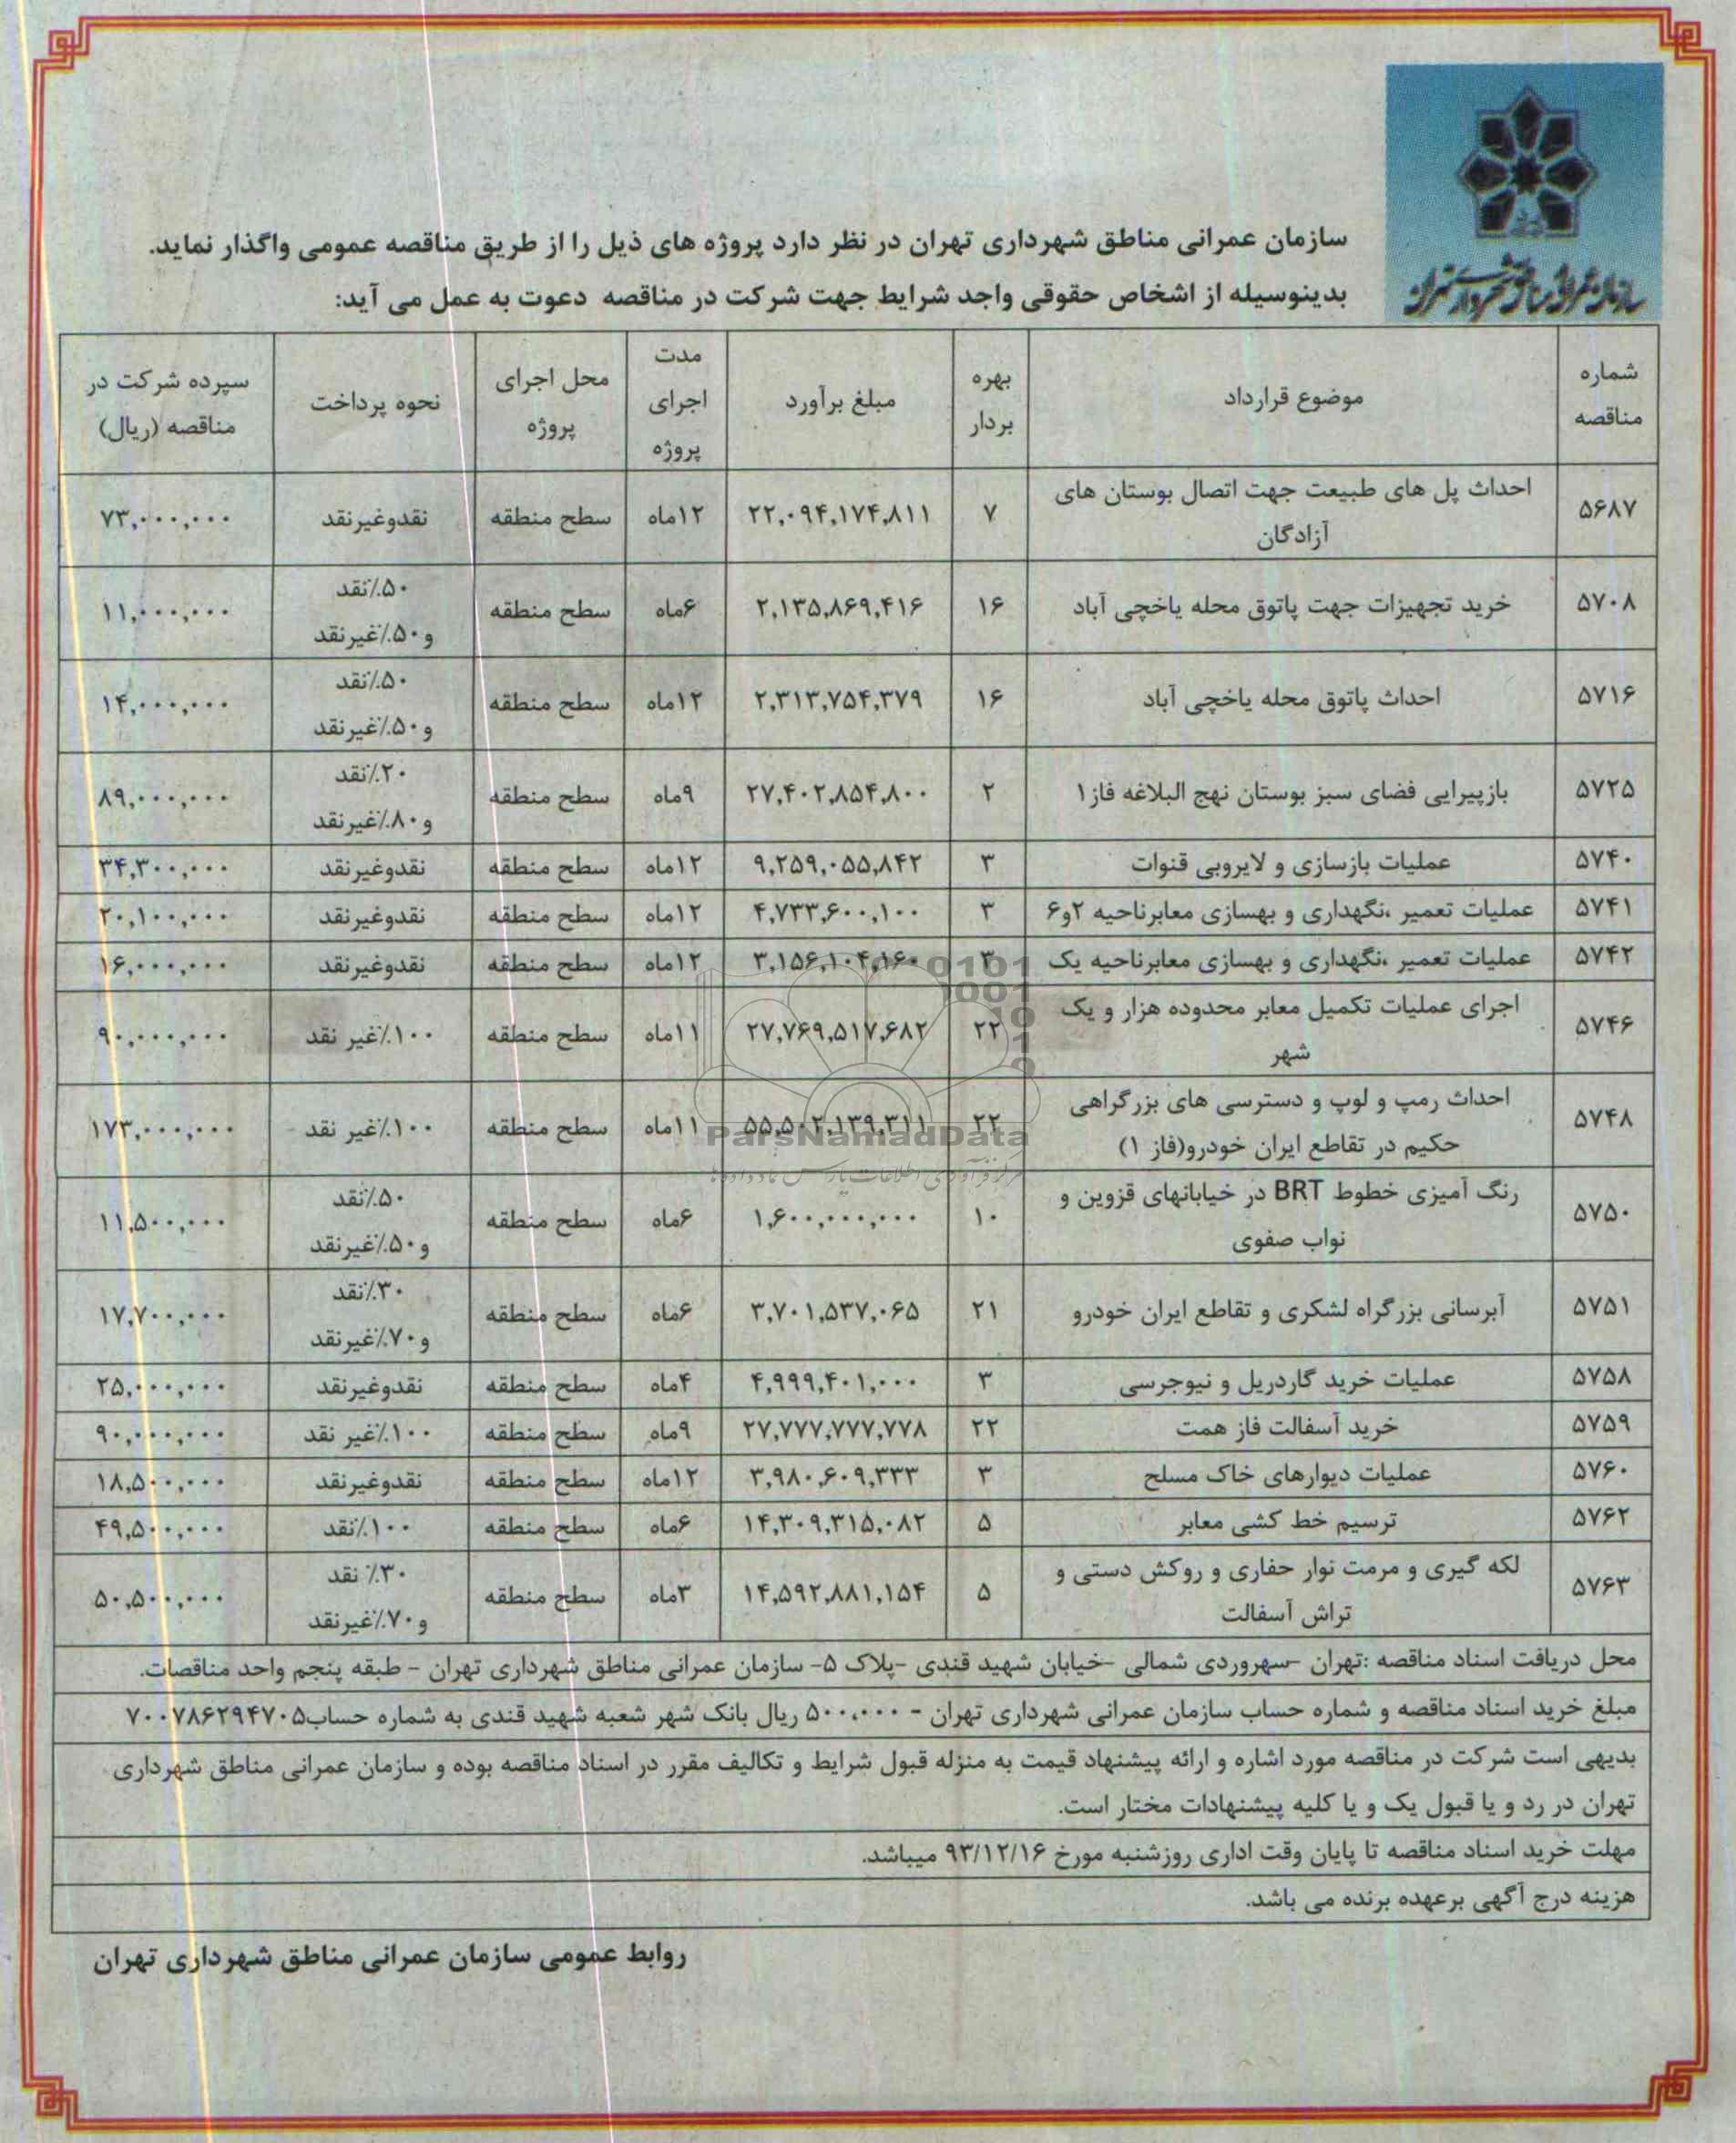 سازمان عمرانی مناطق شهرداری تهران
سازمان عمرانی مناطق شهرداری تهران در نظر دارد پروژه های ذیل را از طریق مناقصه عمومی واگذار نماید.
بدینوسیله از اشخاص حقوقی واجد شرایط جهت شرکت در مناقصه دعوت به عمل می آید:
شماره مناقصه | موضوع قرارداد | بهره بردار | مبلغ برآورد | مدت اجرای پروژه | محل اجرای پروژه | نحوه پرداخت | سپرده شرکت در مناقصه (ریال)
۵۶۸۷ | احداث پل های طبیعت جهت اتصال بوستان های آزادگان | ۷ | ۲۲,۰۹۴,۱۷۴,۸۱۱ | ۱۲ماه | سطح منطقه | نقدوغیرنقد | ۷۳,۰۰۰,۰۰۰
۵۷۰۸ | خرید تجهیزات جهت پاتوق محله یاخچی آباد | ۱۶ | ۲,۱۳۵,۸۶۹,۴۱۶ | ۶ماه | سطح منطقه | ۵۰٪نقد و۵۰٪غیرنقد | ۱۱,۰۰۰,۰۰۰
۵۷۱۶ | احداث پاتوق محله یاخچی آباد | ۱۶ | ۲,۳۱۳,۷۵۴,۳۷۹ | ۱۲ماه | سطح منطقه | ۵۰٪نقد و۵۰٪غیرنقد | ۱۴,۰۰۰,۰۰۰
۵۷۲۵ | بازپیرایی فضای سبز بوستان نهج البلاغه فاز۱ | ۲ | ۲۷,۴۰۲,۸۵۴,۸۰۰ | ۹ماه | سطح منطقه | ۲۰٪نقد و۸۰٪غیرنقد | ۸۹,۰۰۰,۰۰۰
۵۷۴۰ | عملیات بازسازی و لایروبی قنوات | ۳ | ۹,۲۵۹,۰۵۵,۸۴۲ | ۱۲ماه | سطح منطقه | نقدوغیرنقد | ۳۴,۳۰۰,۰۰۰
۵۷۴۱ | عملیات تعمیر ،نگهداری و بهسازی معابرناحیه ۲و۶ | ۳ | ۴,۷۳۳,۶۰۰,۱۰۰ | ۱۲ماه | سطح منطقه | نقدوغیرنقد | ۲۰,۱۰۰,۰۰۰
۵۷۴۲ | عملیات تعمیر ،نگهداری و بهسازی معابرناحیه یک | ۳ | ۳,۱۵۶,۱۰۴,۱۶۰ | ۱۲ماه | سطح منطقه | نقدوغیرنقد | ۱۶,۰۰۰,۰۰۰
۵۷۴۶ | اجرای عملیات تکمیل معابر محدوده هزار و یک شهر | ۲۲ | ۲۷,۷۶۹,۵۱۷,۶۸۲ | ۱۱ماه | سطح منطقه | ۱۰۰٪غیر نقد | ۹۰,۰۰۰,۰۰۰
۵۷۴۸ | احداث رمپ و لوپ و دسترسی های بزرگراهی حکیم در تقاطع ایران خودرو(فاز ۱) | ۲۲ | ۵۵,۵۰۲,۱۳۹,۳۱۱ | ۱۱ماه | سطح منطقه | ۱۰۰٪غیر نقد | ۱۷۳,۰۰۰,۰۰۰
۵۷۵۰ | رنگ آمیزی خطوط BRT در خیابانهای قزوین و نواب صفوی | ۱۰ | ۱,۶۰۰,۰۰۰,۰۰۰ | ۶ماه | سطح منطقه | ۵۰٪نقد و۵۰٪غیرنقد | ۱۱,۵۰۰,۰۰۰
۵۷۵۱ | آبرسانی بزرگراه لشکری و تقاطع ایران خودرو | ۲۱ | ۳,۷۰۱,۵۳۷,۰۶۵ | ۶ماه | سطح منطقه | ۳۰٪نقد و۷۰٪غیرنقد | ۱۷,۷۰۰,۰۰۰
۵۷۵۸ | عملیات خرید گاردریل و نیوجرسی | ۳ | ۴,۹۹۹,۴۰۱,۰۰۰ | ۴ماه | سطح منطقه | نقدوغیرنقد | ۲۵,۰۰۰,۰۰۰
۵۷۵۹ | خرید آسفالت فاز همت | ۲۲ | ۲۷,۷۷۷,۷۷۷,۷۷۸ | ۹ماه | سطح منطقه | ۱۰۰٪غیر نقد | ۹۰,۰۰۰,۰۰۰
۵۷۶۰ | عملیات دیوارهای خاک مسلح | ۳ | ۳,۹۸۰,۶۰۹,۳۳۳ | ۱۲ماه | سطح منطقه | نقدوغیرنقد | ۱۸,۵۰۰,۰۰۰
۵۷۶۲ | ترسیم خط کشی معابر | ۵ | ۱۴,۳۰۹,۳۱۵,۰۸۲ | ۶ماه | سطح منطقه | ۱۰۰٪نقد | ۴۹,۵۰۰,۰۰۰
۵۷۶۳ | لکه گیری و مرمت نوار حفاری و روکش دستی و تراش آسفالت | ۵ | ۱۴,۵۹۲,۸۸۱,۱۵۴ | ۳ماه | سطح منطقه | ۳۰٪ نقد و۷۰٪غیرنقد | ۵۰,۵۰۰,۰۰۰
محل دریافت اسناد مناقصه :تهران -سهروردی شمالی -خیابان شهید قندی -پلاک ۵- سازمان عمرانی مناطق شهرداری تهران - طبقه پنجم واحد مناقصات.
مبلغ خرید اسناد مناقصه و شماره حساب سازمان عمرانی شهرداری تهران - ۵۰۰،۰۰۰ ریال بانک شهر شعبه شهید قندی به شماره حساب۷۰۰۷۸۶۲۹۴۷۰۵
بدیهی است شرکت در مناقصه مورد اشاره و ارائه پیشنهاد قیمت به منزله قبول شرایط و تکالیف مقرر در اسناد مناقصه بوده و سازمان عمرانی مناطق شهرداری
تهران در رد و یا قبول یک و یا کلیه پیشنهادات مختار است.
مهلت خرید اسناد مناقصه تا پایان وقت اداری روزشنبه مورخ ۹۳/۱۲/۱۶ میباشد.
هزینه درج آگهی برعهده برنده می باشد.
روابط عمومی سازمان عمرانی مناطق شهرداری تهران
ParsNamadData
مرکز فرآوری اطلاعات پارس نماد داده ها